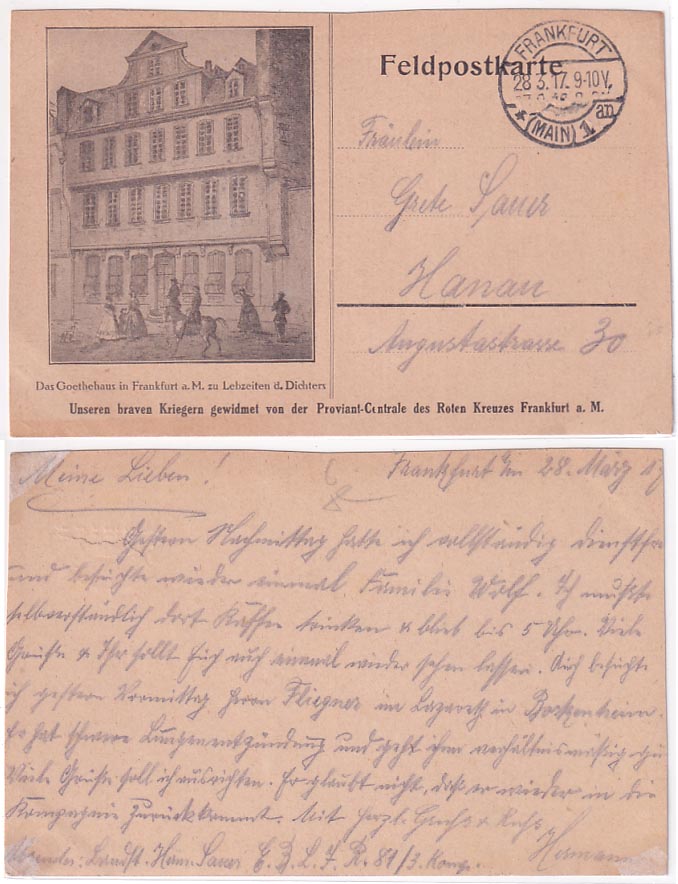 Feldpostkarte
FRANKFURT
28.3.17. 9-10V.
* (MAIN) 1 an
Fräulein
Grete Sauer
Hanau
Augustastrasse 30
Das Goethehaus in Frankfurt a. M. zu Lebzeiten d. Dichters
Unseren braven Kriegern gewidmet von der Proviant-Centrale des Roten Kreuzes Frankfurt a. M.
Meine Lieben! Frankfurt a/m 28. März 17
Gestern Nachmittag hatte ich vollständig dienstfrei
und besuchte wieder einmal Familie Wolf. Ich mußte
selbverständlich dort Kaffee trinken & blieb bis 5 Uhr. Viele
Grüße & Ihr sollt Euch auch einmal wieder sehen lassen. Auch besuchte
ich gestern Vormittag Herrn Fliegner im Lazareth in Bockenheim.
Er hat schwere Lungenentzündung und geht ihm verhältnismäßig gu
Viele Grüße soll ich ausrichten. Er glaubt nicht, daß er wieder in die
Kompagnie zurückkommt. Mit herzl. Gruß & Kuß
Absender: Landst. Herm. Sauer E. B. L. I. R. 81/3. Komp. Hermann